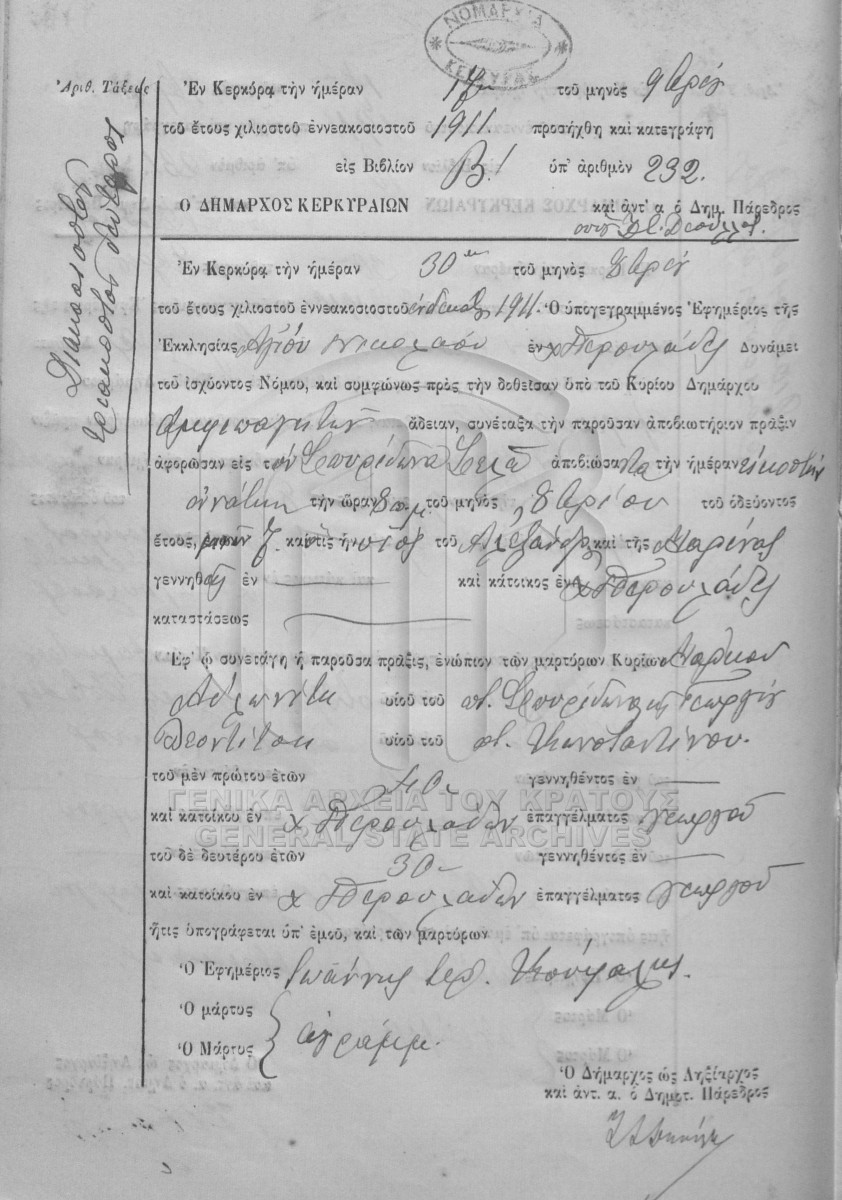 ΝΟΜΑΡΧΙΑ
ΚΕΡΚΥΡΑΣ
Ἀριθ. Τάξεως
Διακοσιοστὸν
τριακοστὸν δεύτερον
Ἐν Κερκύρᾳ τὴν ἡμέραν 1ην τοῦ μηνὸς 9βρίου
τοῦ ἔτους χιλιοστοῦ ἐννεακοσιοστοῦ 1911. προσήχθη καὶ κατεγράφη
εἰς Βιβλίον Β! ὑπ' ἀριθμὸν 232.
Ο ΔΗΜΑΡΧΟΣ ΚΕΡΚΥΡΑΙΩΝ καὶ ἀντ' α ὁ Δημ. Πάρεδρος
Ἐν Κερκύρᾳ τὴν ἡμέραν 30 τοῦ μηνὸς 8βρίου
τοῦ ἔτους χιλιοστοῦ ἐννεακοσιοστοῦ ἑνδεκάτου 1911. Ὁ ὑπογεγραμμένος Ἐφημέριος τῆς
Ἐκκλησίας Ἁγίου Νικολάου ἐν χ Περουλάδες Δυνάμει
τοῦ ἰσχύοντος Νόμου, καὶ συμφώνως πρὸς τὴν δοθεῖσαν ὑπὸ τοῦ Κυρίου Δημάρχου
ἄδειαν, συνέταξα τὴν παροῦσαν ἀποβιωτήριον πρᾶξιν
ἀφορῶσαν εἰς τὸν Σπυρίδωνα ἀποβιώσαντα τὴν ἡμέραν εἰκοστὴν
ἐννάτην τὴν ὥραν 8 π.μ τοῦ μηνὸς 8βρίου τοῦ ὁδεύοντος
ἔτους, 7 καὶ τις ἦν υἱὸς τοῦ Ἀλεξάνδρου καὶ τῆς Μαρίνας
γεννηθεὶς ἐν καὶ κάτοικος ἐν χ Περουλάδες
καταστάσεως
Ἐφ' ᾧ συνετάγη ἡ παροῦσα πρᾶξις, ἐνώπιον τῶν μαρτύρων Κυρίων
υἱοῦ τοῦ ποτ. Σπυρίδωνος καὶ Γεωργίου
Λεοντίτση υἱοῦ τοῦ ποτ. Κωνσταντίνου.
τοῦ μὲν πρώτου ἐτῶν 40 γεννηθέντος ἐν
καὶ κατοίκου ἐν χ Περουλάδων ἐπαγγέλματος γεωργοῦ
ΓΕΝΙΚΑ ΑΡΧΕΙΑ ΤΟΥ ΚΡΑΤΟΥΣ
GENERAL STATE ARCHIVES
τοῦ δὲ δευτέρου ἐτῶν 30 γεννηθέντος ἐν
καὶ κατοίκου ἐν χ Περουλάδων ἐπαγγέλματος γεωργοῦ
ἥτις ὑπογράφεται ὑπ' ἐμοῦ, καὶ τῶν μαρτύρων
Ὁ Ἐφημέριος Ἰωάννης ἱερ.
Ὁ μάρτυς
Ὁ Μάρτυς
ἀγράμμ.
Ὁ Δήμαρχος ὡς Ληξίαρχος
καὶ ἀντ. α. ὁ Δημοτ. Πάρεδρος